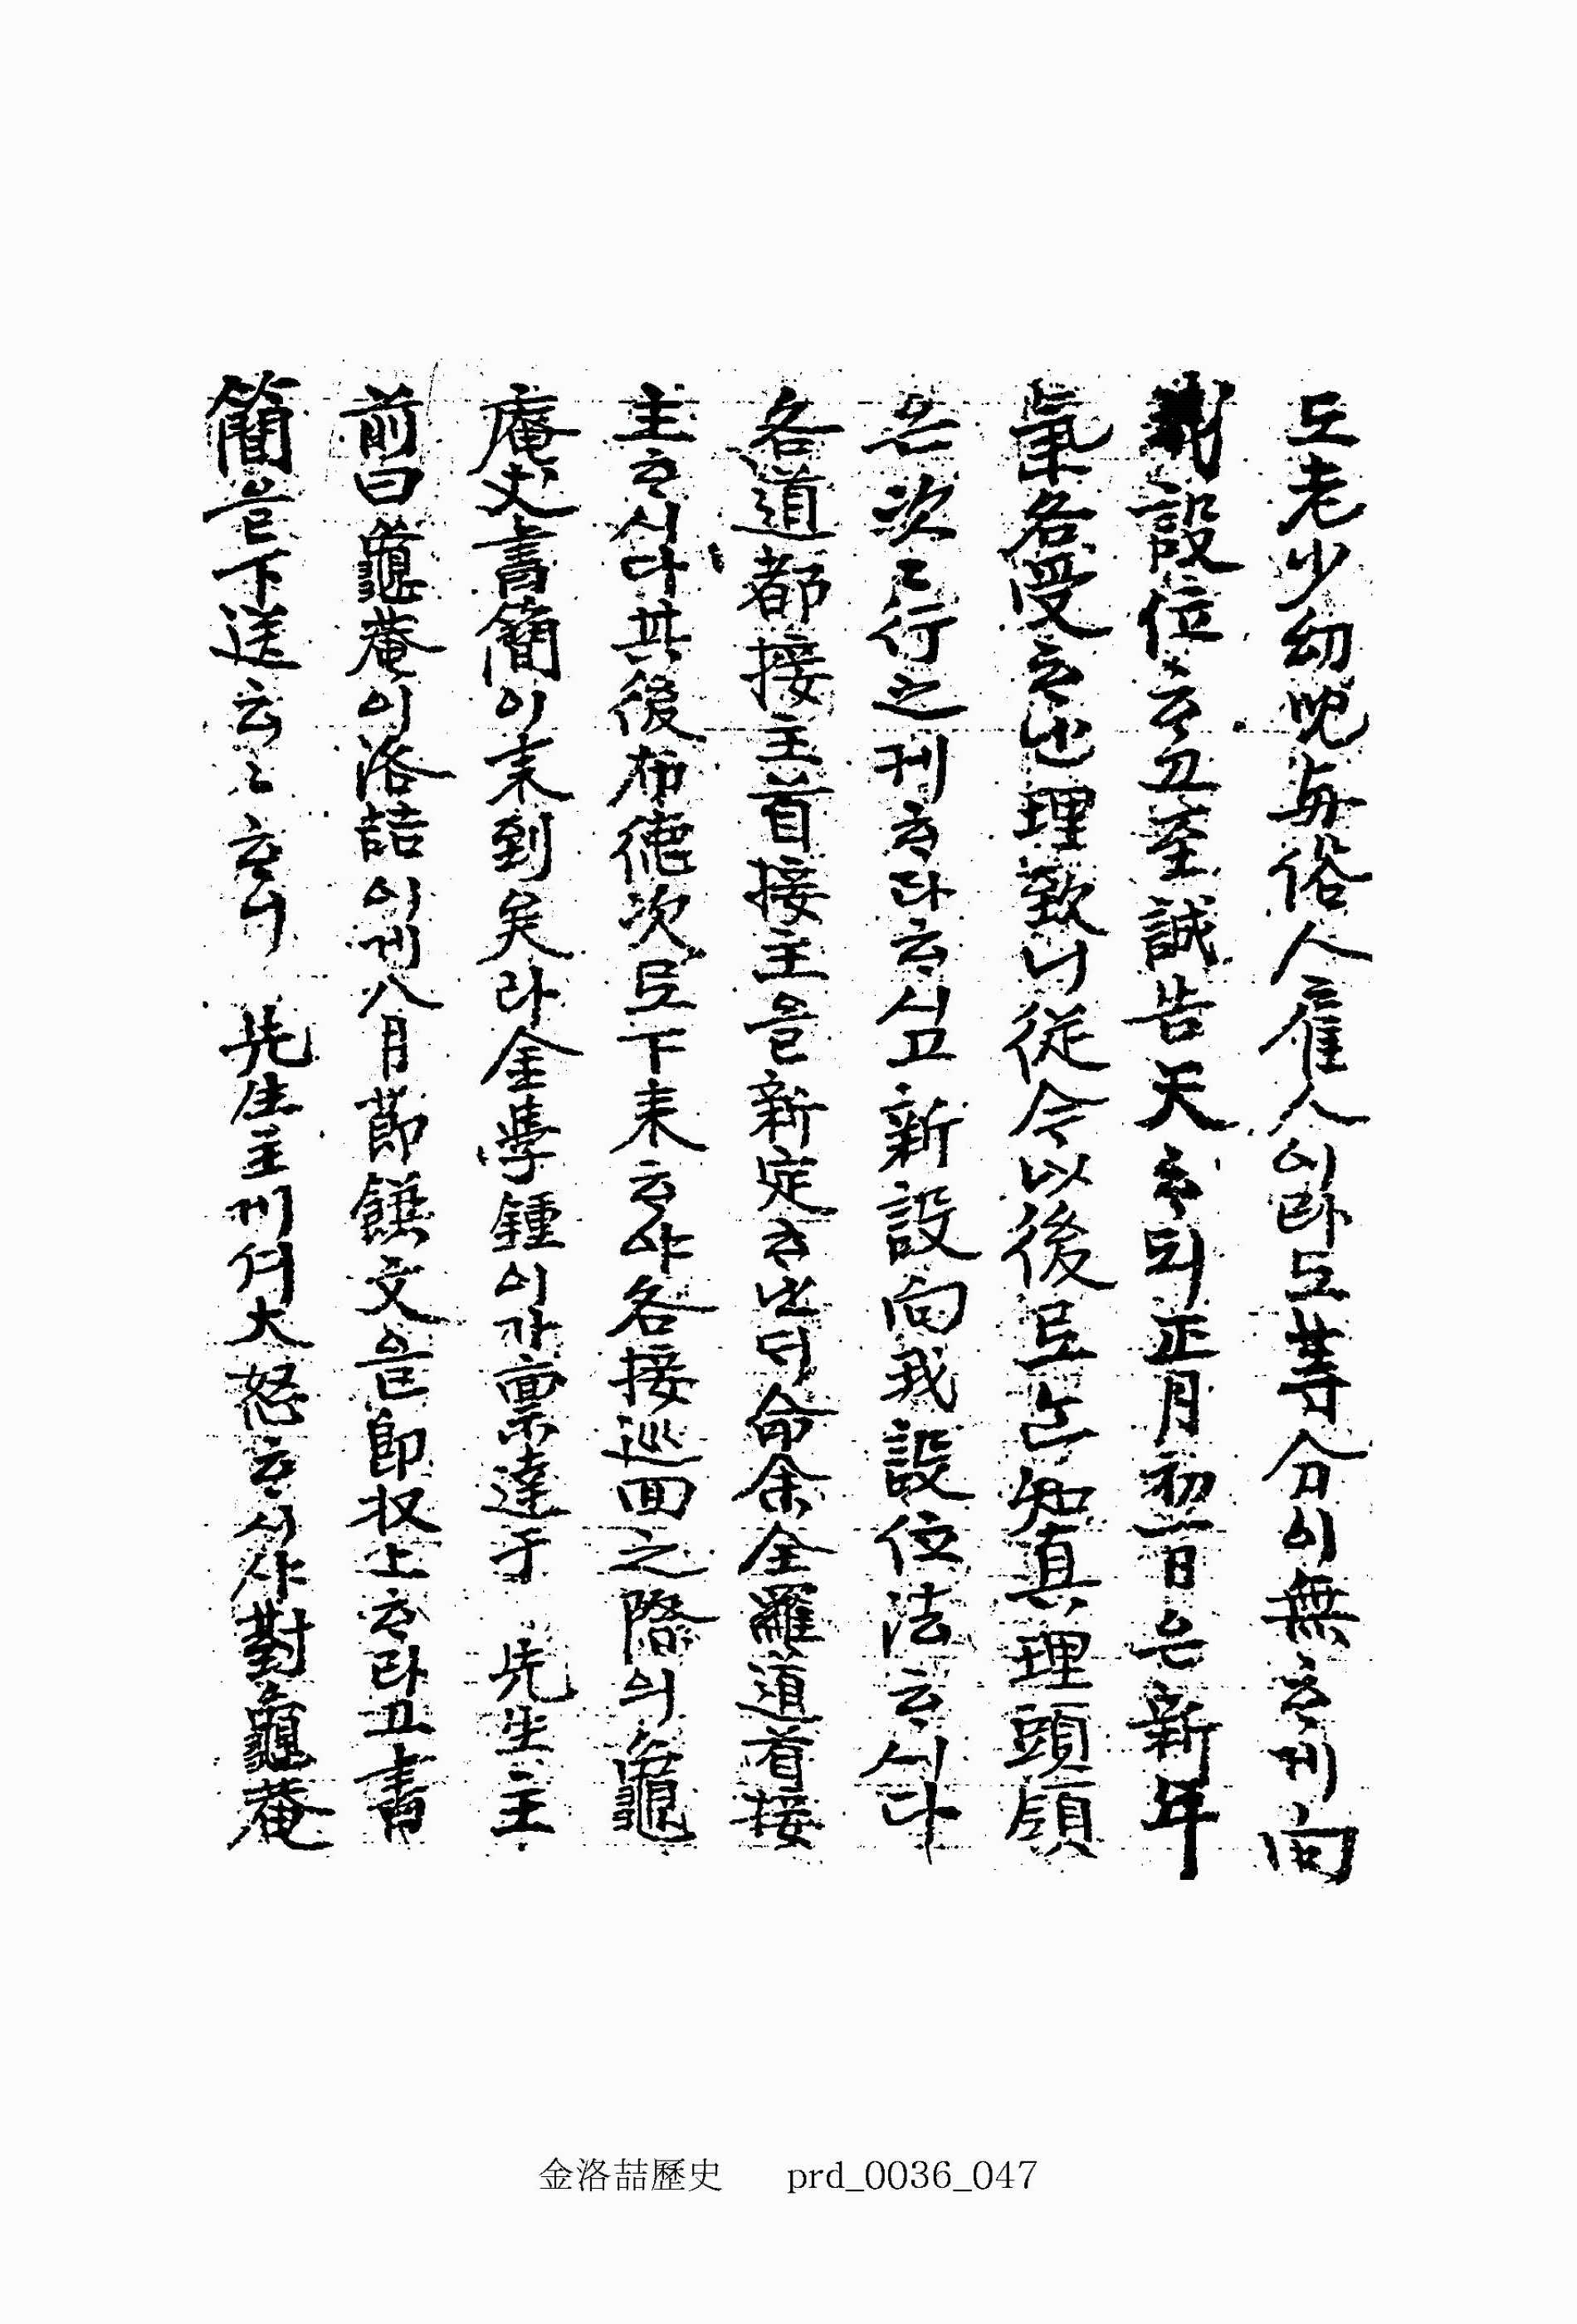 도老少幼兒与俗人雇人이라도等分이無ᄒᆞ게向
我設位ᄒᆞ고至誠告天ᄒᆞ되正月初一日은新年
氣各受ᄒᆞ난理致니從今以後로난知眞理頭領
은次次行之케ᄒᆞ라ᄒᆞ시고新設向我設位法ᄒᆞ시다
各道都接主首接主을新定ᄒᆞ난ᄃᆡ命余全羅道首接
主ᄒᆞ시다其後布德次로下來ᄒᆞ야各接巡回之際의龜
庵丈書簡이來到矣라金學鍾이가禀達于 先生主
前曰龜菴이洛喆이게八月節饌文을卽收上ᄒᆞ라고書
簡을下送云云ᄒᆞ니 先生主게셔大怒ᄒᆞ시사對龜菴
金洛喆歷史 prd_0036_047